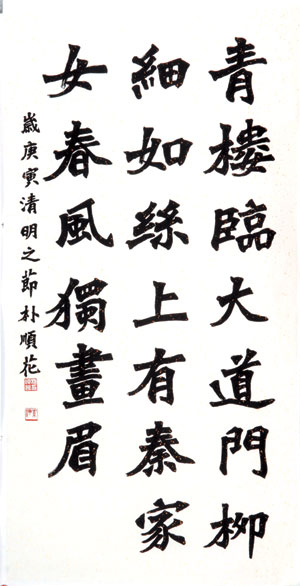 青樓臨大道門柳
細如絲上有秦家
女春風獨畫眉
歲庚寅清明之節朴順花